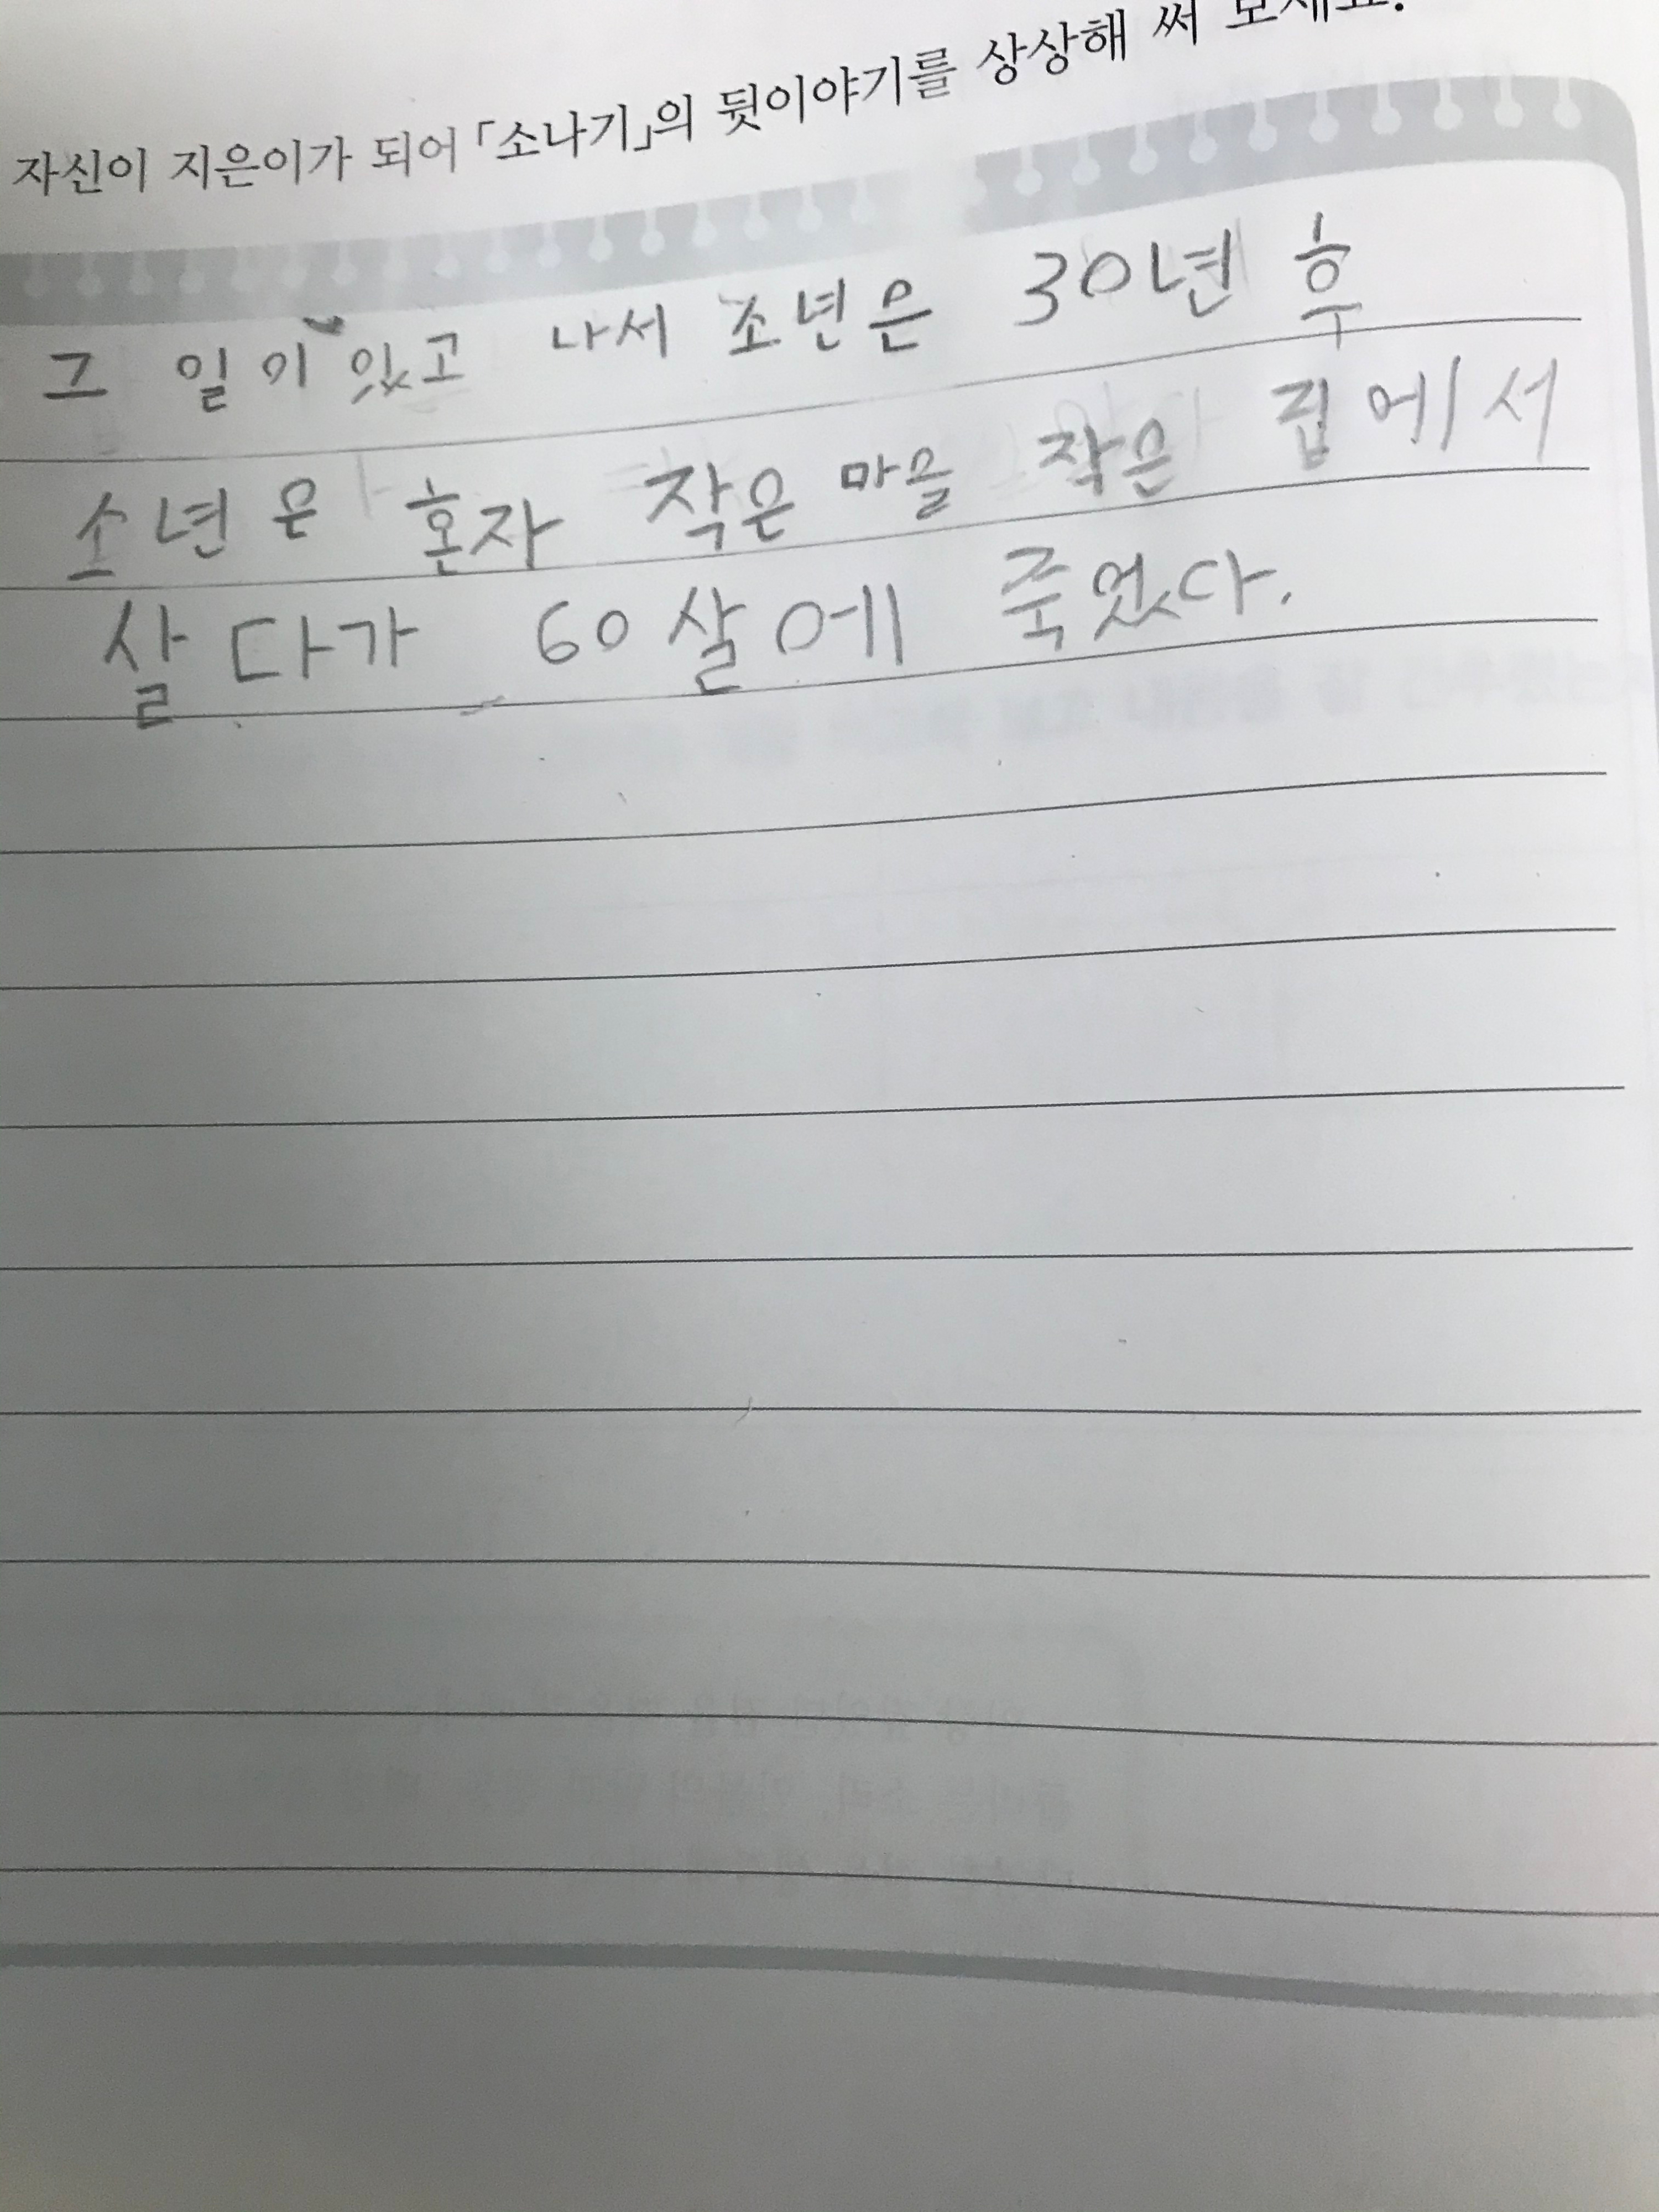 자신이 지은이가 되어 「소나기」의 뒷이야기를 상상해 써 보세요.
그 일이 있고 나서 소년은 30년 후
소년은 혼자 작은 마을 작은 집에서
살다가 60살에 죽었다.